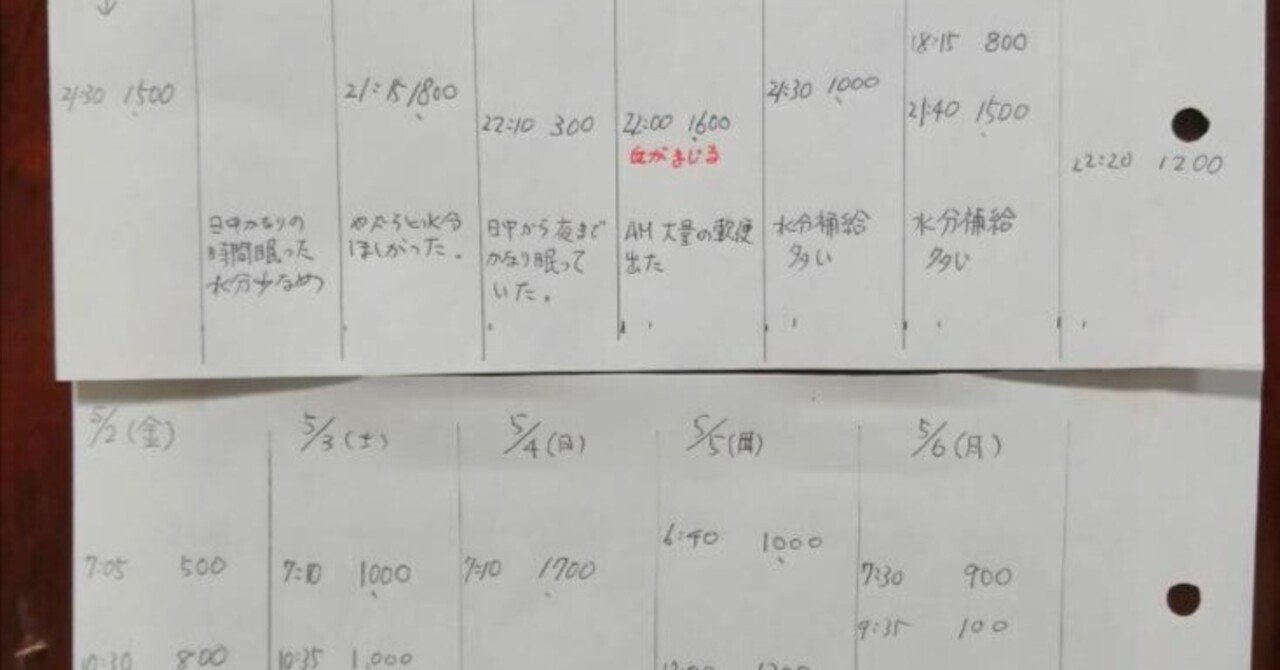 ↓
18:15 800
21:30 1500
21:15 1800
22:10 300
21:00 1600
21:30 1000
21:40 1500
22:20 1200
血がまじる
日中かなりの
時間眠った
水分少なめ
やたらと水分
ほしがった。
日中から夜まで
かなり眠って
いた。
AM 大量の軟便
出た
水分補給
多い
水分補給
多い
5/2(金)
5/3(土)
5/4(日)
5/5(月)
5/6(月)
7:05 500
7:10 1000
7:10 1700
6:40 1000
7:30 900
9:35 100
10:30 800
10:35 1,000